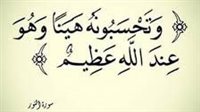 ﴿ وَتَحْسَبُونَهُ هَيِّنًا وَهُوَ
عِندَ اللَّهِ عَظِيمٌ ﴾
سورة النور